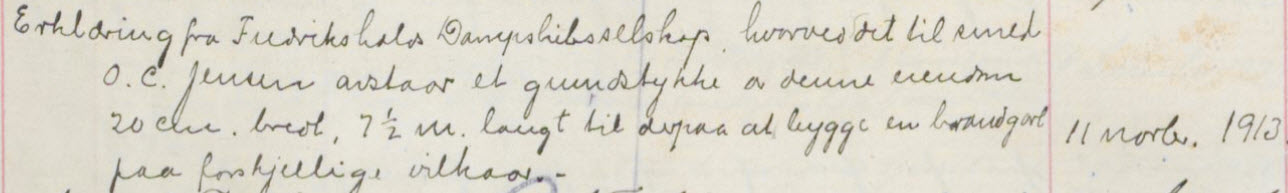 Erklæring fra Fredrikshalds Dampskibsselskap, hvorved det til smed
O.C. Jensen avstaar et grundstykke a denne eiendom
20 cm. bredt, 7½ m. langt til derpaa at bygge en brandgavl
paa forskjellige vilkaar.- 11 novbr. 1913.